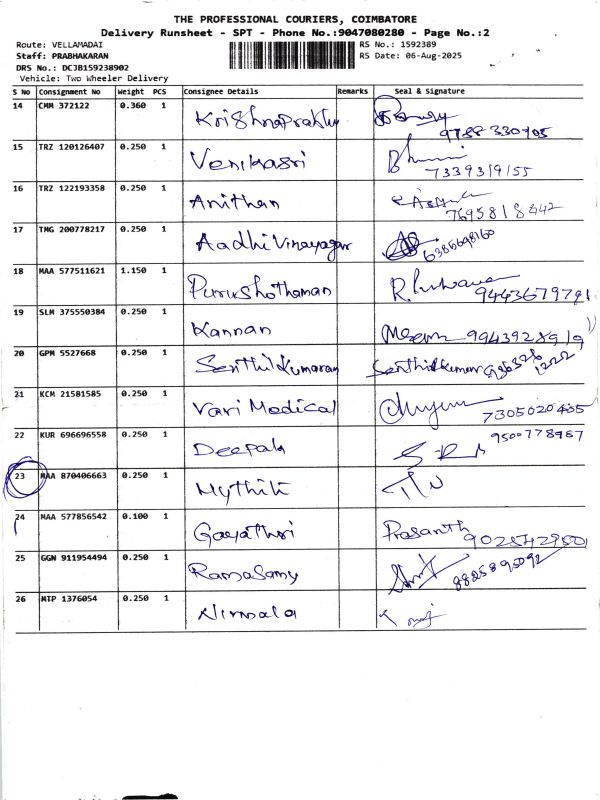 THE PROFESSIONAL COURIERS, COIMBATORE
Delivery Runsheet - SPT - Phone No.:9047080280 - Page No.:2
Route: VELLAMADAI RS No.: 1592389
Staff: PRABHAKARAN RS Date: 06-Aug-2025
DRS No.: DCJB159238902
Vehicle: Two Wheeler Delivery
S No Consignment No Weight PCS Consignee Details Remarks Seal & Signature
14 CMM 372122 0.360 1 Krishnaprabhu
15 TRZ 120126407 0.250 1 Venikasri
7339319155
16 TRZ 122193358 0.250 1 Anithan
7695818442
17 TMG 200778217 0.250 1 AadhiVinayagar
6385698160
18 MAA 577511621 1.150 1 Purushothaman
9443679791
19 SLM 375550384 0.250 1 Kannan
9943928919
20 GPM 5527668 0.250 1 Senthilkumaran Senthilkumar
21 KCM 21581585 0.250 1 Vari Medical
7305020455
22 KUR 696696558 0.250 1 Deepak
9500778967
23 MAA 870406663 0.250 1 Mythili
24 MAA 577856542 0.100 1 Gayathri Prasanth
25 GGN 911954494 0.250 1 Ramasamy
8825895092
26 MTP 1376054 0.250 1 Nirmala